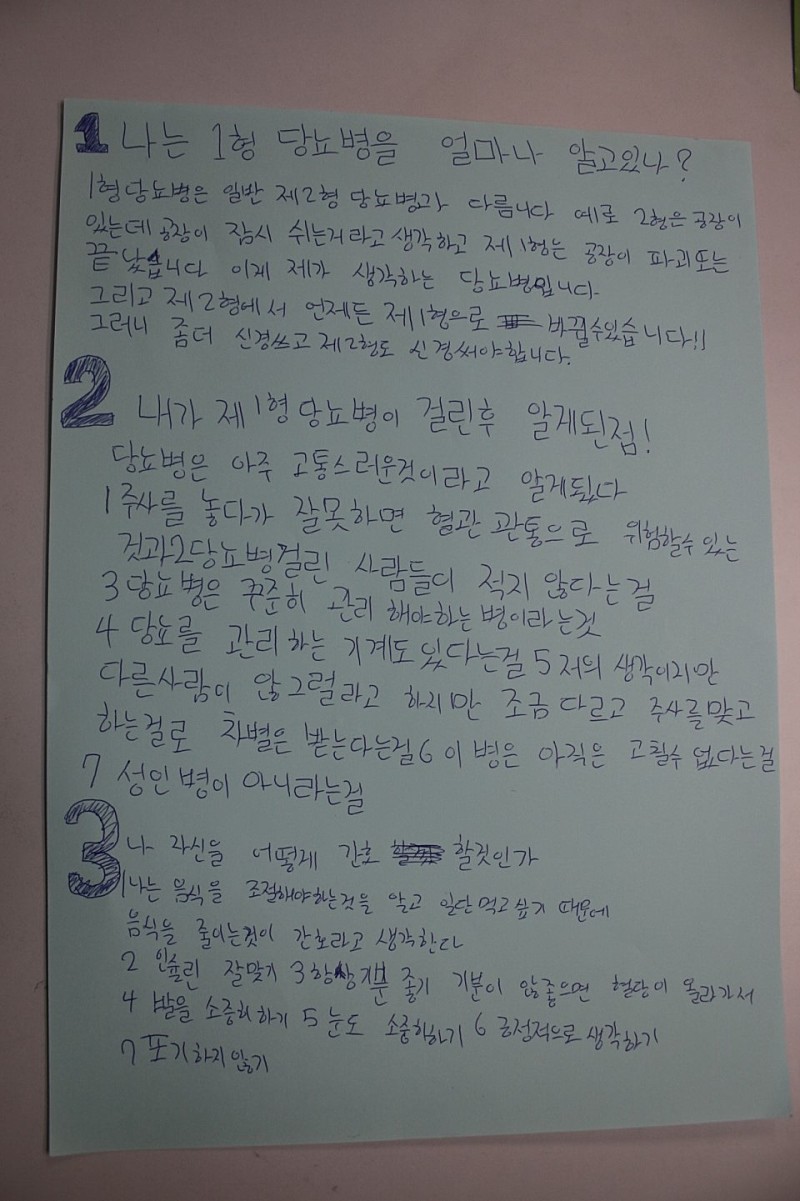 1 나는 1형 당뇨병을 얼마나 알고있나?
1형당뇨병은 일반 제2형 당뇨병과 다릅니다 예로 2형은 공장이
있는데 공장이 잠시 쉬는거라고 생각하고 제1형는 공장이 파괴또는
끝났습니다 이게 제가 생각하는 당뇨병입니다.
그리고 제2형에서 언제든 제1형으로 바뀔수있습니다!!
그러니 좀더 신경쓰고 제2형도 신경써야합니다.
2 내가 제1형당뇨병이 걸린후 알게된점!
당뇨병은 아주 고통스러운것이라고 알게됬다
1 주사를 놓다가 잘못하면 혈관 관통으로 위험할수있는
것과2당뇨병걸린 사람들이 적지 않다는걸
3 당뇨병은 꾸준히 관리해야하는병이라는것
4 당뇨를 관리하는 기계도있다는걸 5 저의 생각이지만
다른사람이 않그럴라고 하지만 조금다르고 주사를맞고
하는걸로 차별은 받는다는걸6 이 병은 아직은 고칠수 없다는걸
7 성인병이 아니라는걸
3 나 자신을 어떻게 간호 할것인가
1나는 음식을 조절해야하는것을 알고 일단먹고싶기 때문에
음식을 줄이는것이 간호라고 생각한다
2 인슐린 잘맞기 3항상기분 좋기 기분이 않좋으면 혈당이 올라가서
4 발을 소중히하기 5 눈도 소중히하기 6 긍정적으로생각하기
7 포기하지않기